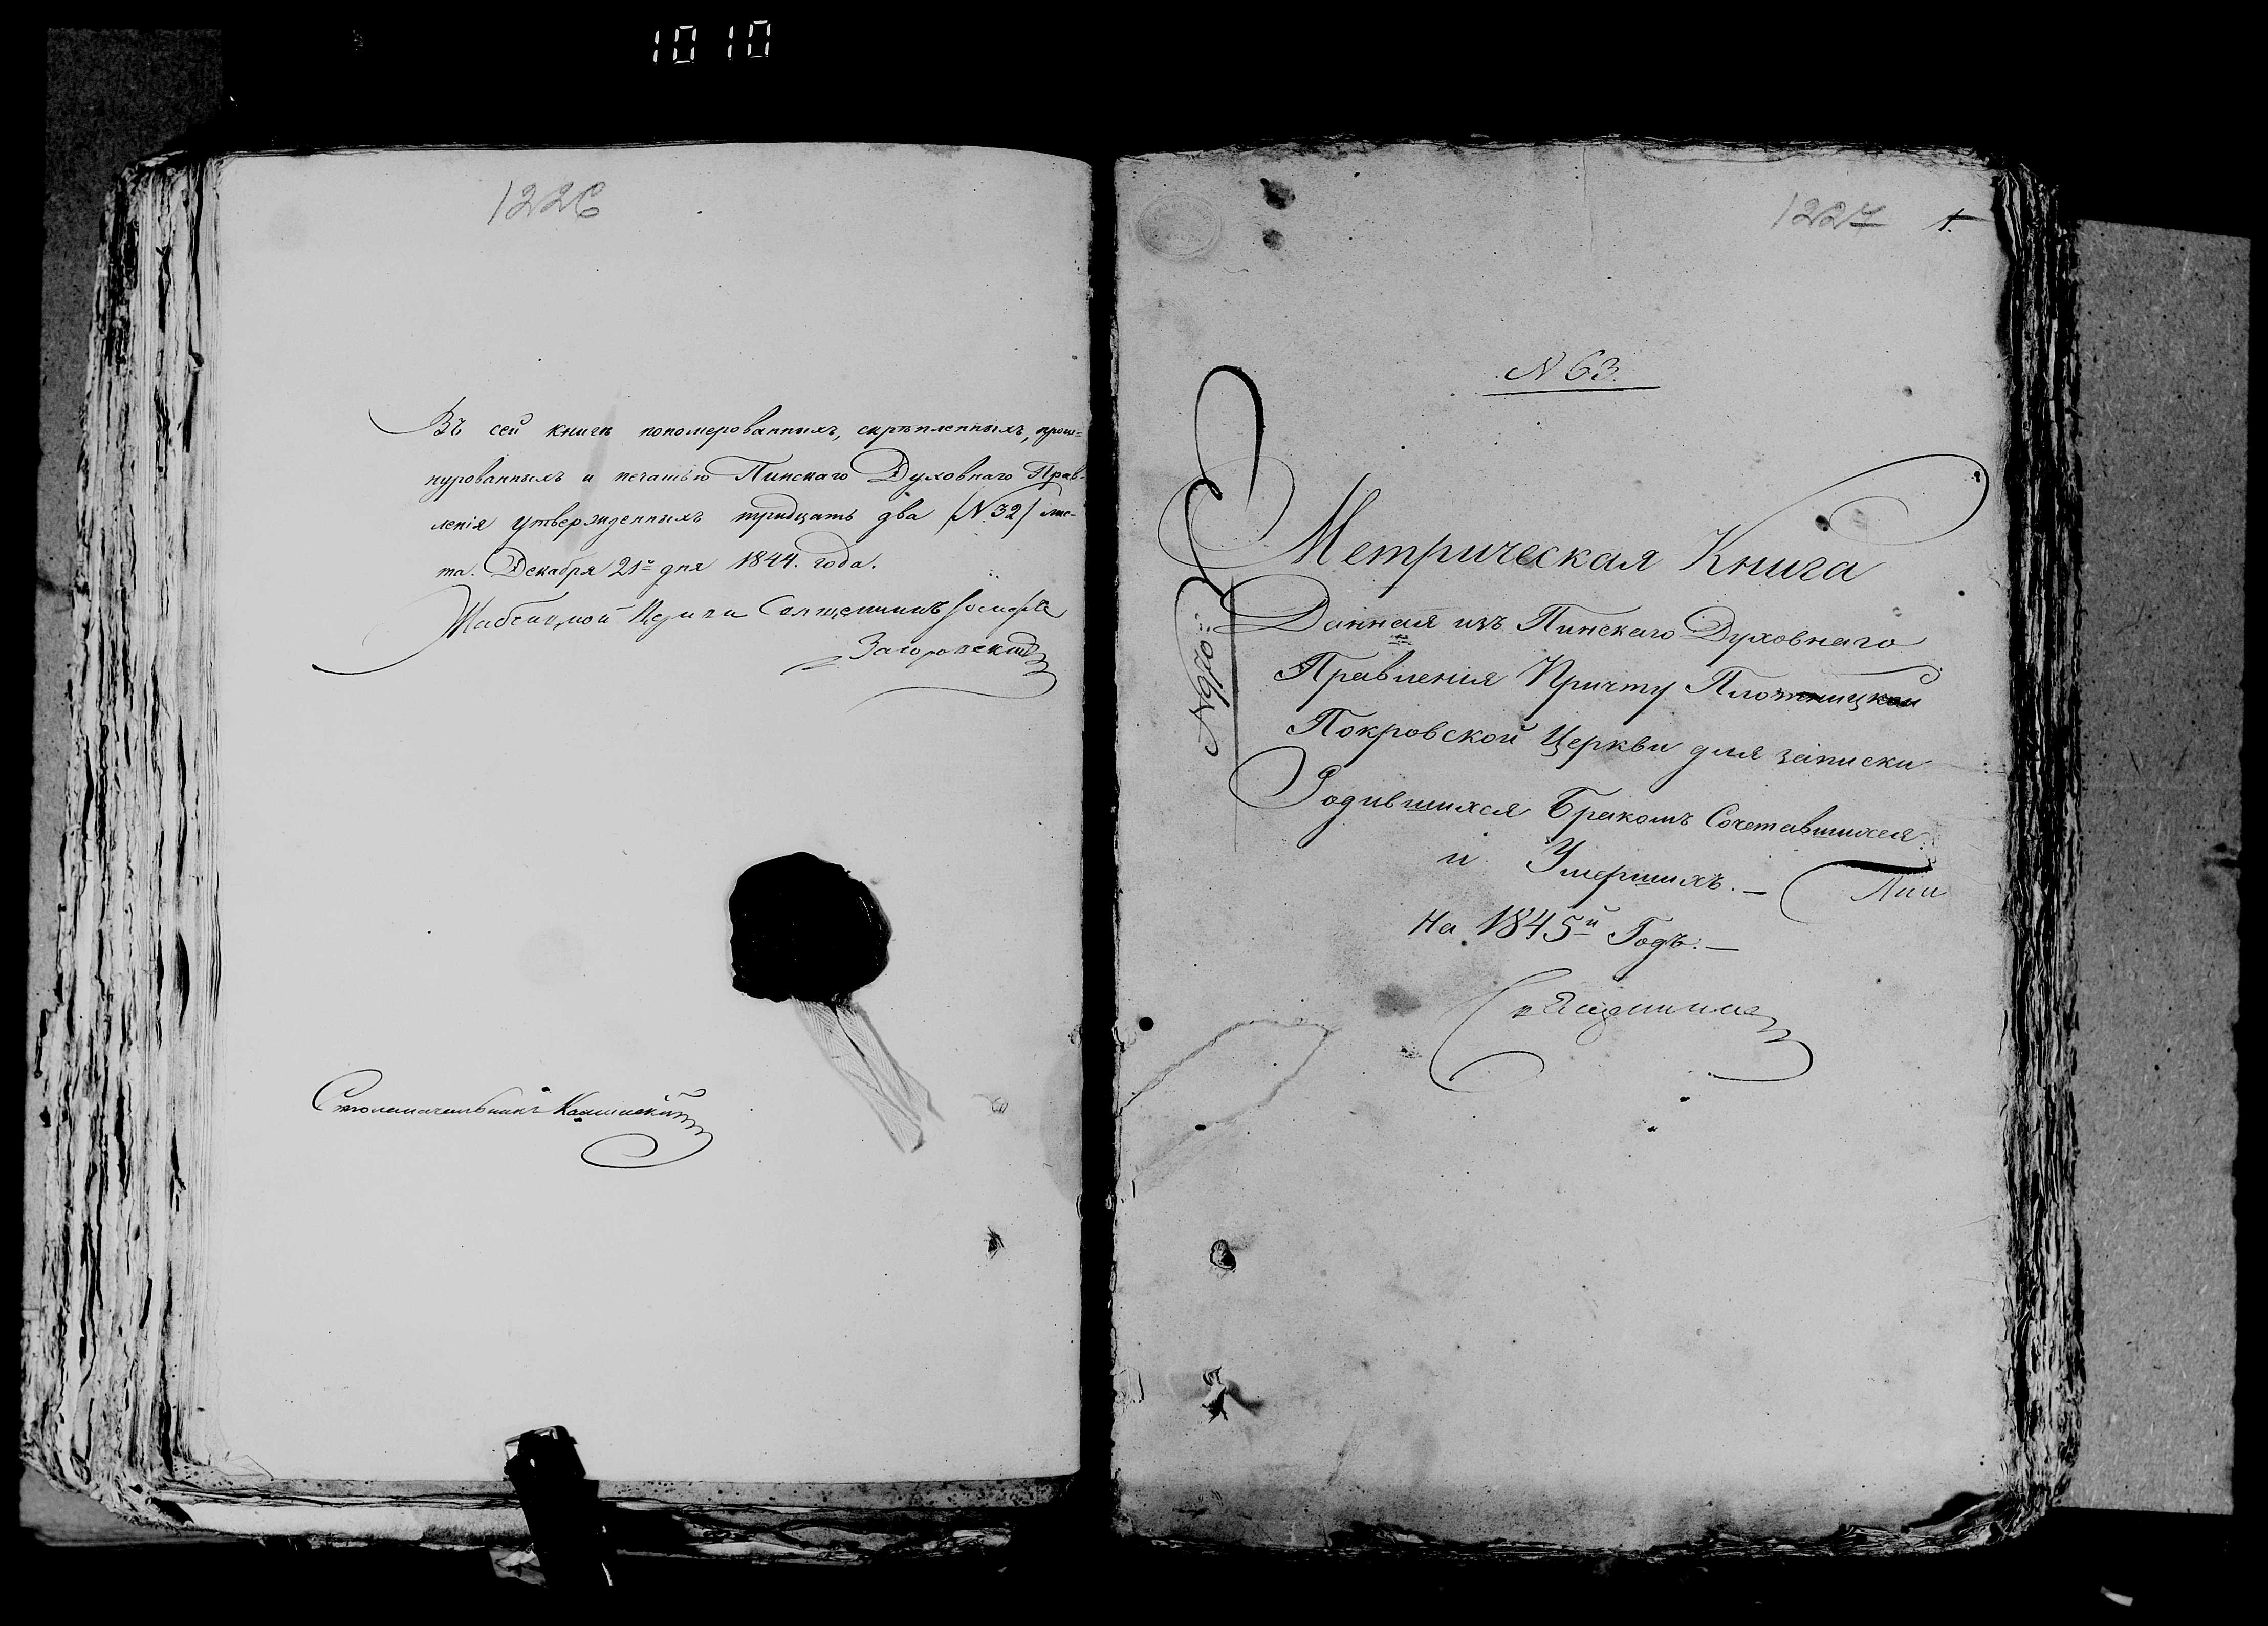 1010
1226
Въ сей книгѣ пономерованныхъ, скрѣпленныхъ, прош-
нурованныхъ и печатью Пинскаго Духовнаго Прав-
ленія утвержденныхъ тридцать два /N 32/ лис-
та. Декабря 21го дня 1844. года.
Жабчицкой Церкви Священникъ Іосифъ
Загоровскій
Столоначальникъ
1227 1.
N 63.
Метрическая Книга
Данная изъ Пинскаго Духовнаго
Правленія Причту Плотницкой
Покровской Церкви для записки
Родившихся Бракомъ Сочетавшихся
и Умершихъ. —
На 1845й Годъ. —
Священник